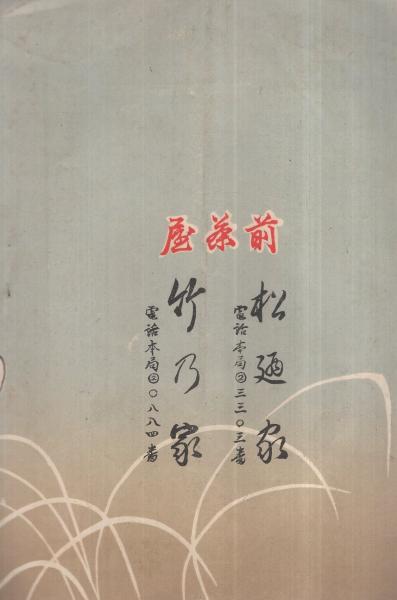 前茶屋
松廼家
電話本局②三三〇三番
竹乃家
電話本局②〇八八四番